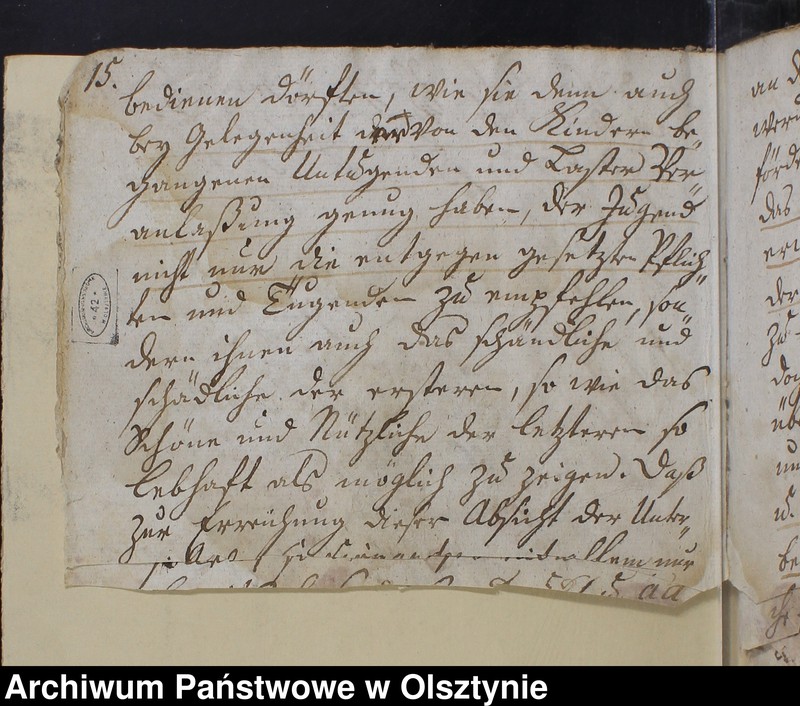 15.
bedienen dörften, wie sie denn auch
bey Gelegenheit der von den Kindern be-
gangenen Untugenden und Laster Ver-
anlaßung genug haben, der Jugend
nicht nur die entgegen gesetzten Pflich-
ten und Tugenden zu empfehlen, son-
dern ihnen auch das schändliche und
schädliche der ersteren, so wie das
Schöne und Nützliche der letzteren so
lebhaft als möglich zu zeigen. Daß
zur Erreichung dieser Absicht der Unter-
allem nur
42
an
das
der
zu
und
Archiwum Państwowe w Olsztynie